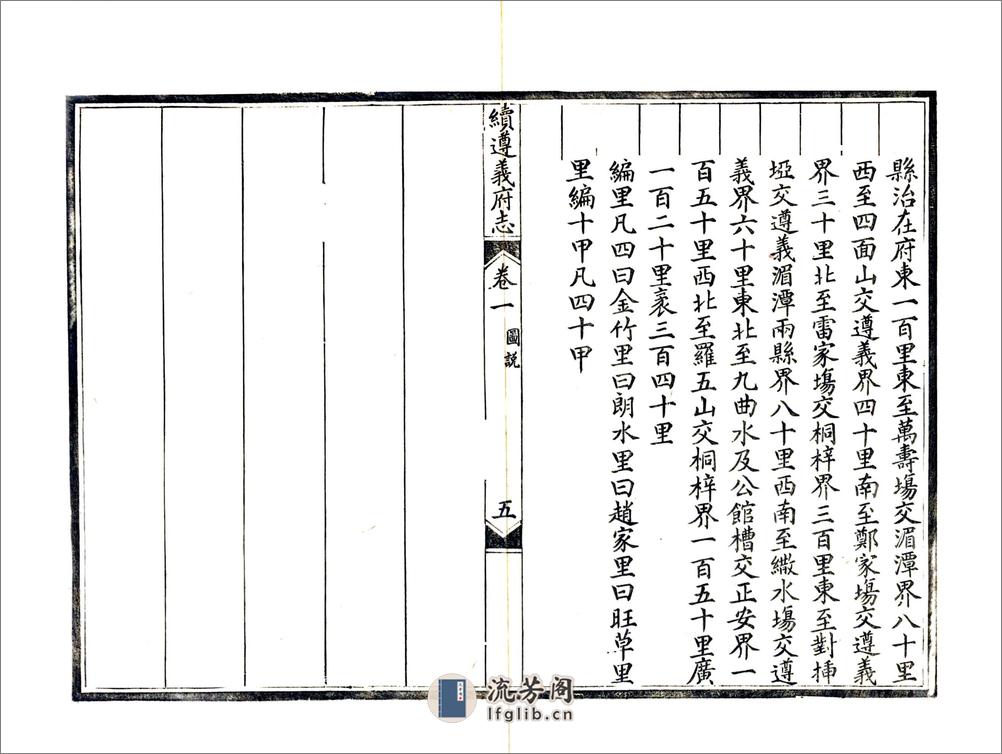 縣治在府東一百里東至萬壽塲交湄潭界八十里
西至四面山交遵義界四十里南至鄭家塲交遵義
界三十里北至雷家塲交桐梓界三百里東至對挿
埡交遵義湄潭兩縣界八十里西南至繳水塲交遵
義界六十里東北至九曲水及公館槽交正安界一
百五十里西北至羅五山交桐梓界一百五十里廣
一百二十里袤三百四十里
編里凡四曰金竹里曰朗水里曰趙家里曰旺草里
里編十甲凡四十甲
續遵義府志
卷一
圖説
五
流芳阁
lfglib.cn